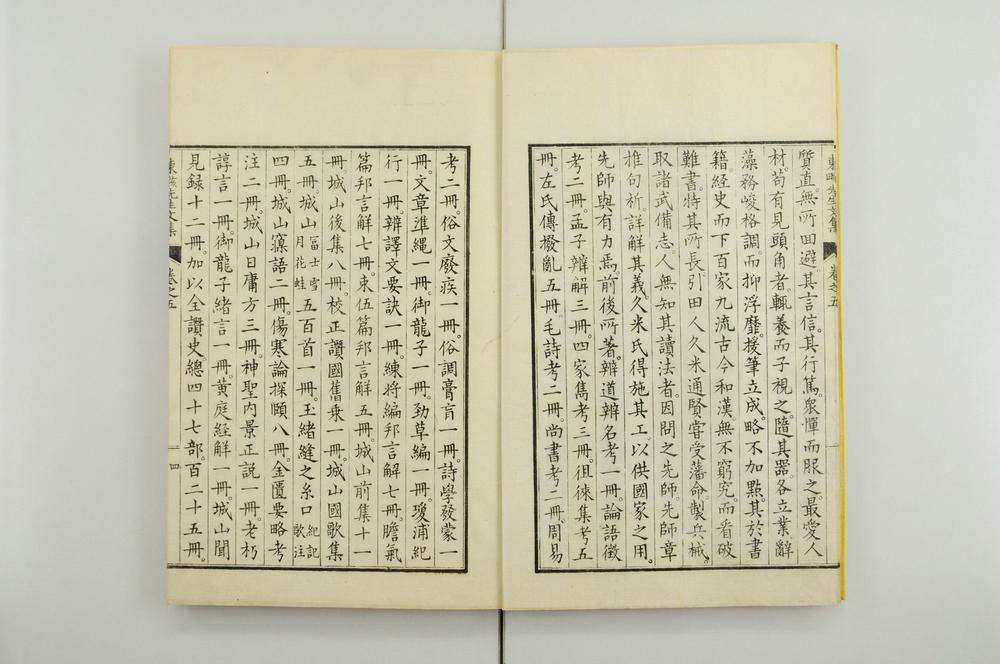 東畡先生文集
卷之五
質直。無所回避。其言信。其行篤。眾憚而服之。最愛人
材。苟有見頭角者。輒養而子視之。隨其器。各立業。辭
藻務峻格調。而抑浮靡。援筆立成。略不加點。其於書
籍。經史而下。百家九流。古今和漢。無不窮究。而看破
難書。特其所長。引田人久米通賢。嘗受藩命。製兵械。
取諸武備志。人無知其讀法者。因問之先師。先師章
推句析。詳解其義。久米氏得施其工。以供國家之用。
先師與有力焉。前後所著。辨道辨名考一冊。論語徵
考二冊。孟子辨解三冊。四家雋考三冊。徂徠集考五
冊。左氏傳撥亂五冊。毛詩考二冊。尚書考二冊。周易
考二冊。俗文廢疾一冊。俗調膏肓一冊。詩學發蒙一
冊。文章準繩一冊。御龍子一冊。勁草編一冊。瓊浦紀
行一冊。辨譯文要訣一冊。練將編邦言解七冊。膽氣
篇邦言解七冊。束伍篇邦言解五冊。城山前集十一
冊。城山後集八冊。校正讚國舊乘一冊。城山國歌集
五冊。城山富士雪月花蛙五百首一冊。玉緒縫之糸口紀記歌注
四冊。城山寱語二冊。傷寒論探賾八冊。金匱要略考
注二冊。城山日庸方三冊。神聖內景正説一冊。老朽
諄言一冊。御龍子緒言一冊。黃庭經解一冊。城山聞
見録十二冊。加以全讚史。總四十七部。百二十五冊。
東畡先生文集
卷之五
四